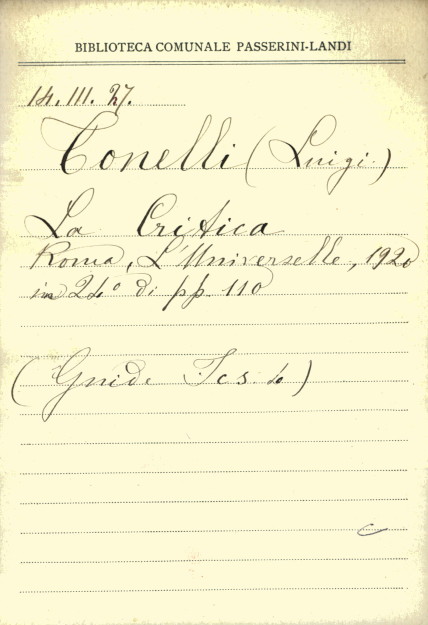 BIBLIOTECA COMUNALE PASSERINI-LANDI
14.III.27.
Tonelli (Luigi.)
La Critica
Roma, L'Universelle, 1920
in 24° di pp. 110
(Guide Ics. 4)